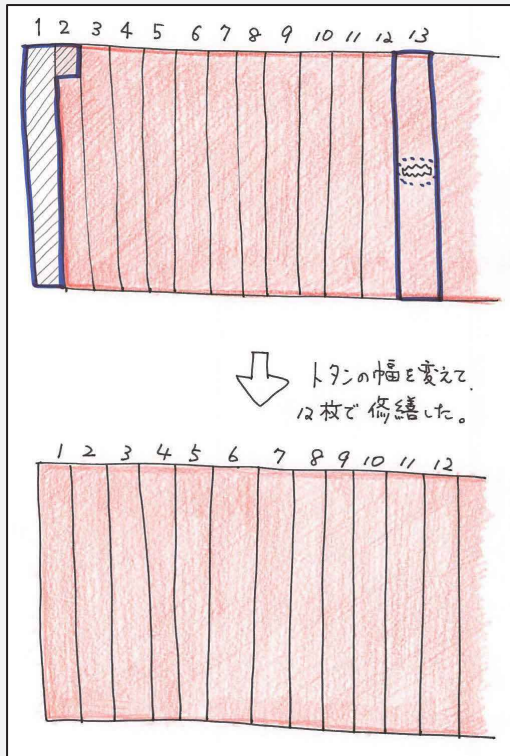 1 2 3 4 5 6 7 8 9 10 11 12 13
トタンの幅を変えて、
12枚で修繕した。
1 2 3 4 5 6 7 8 9 10 11 12